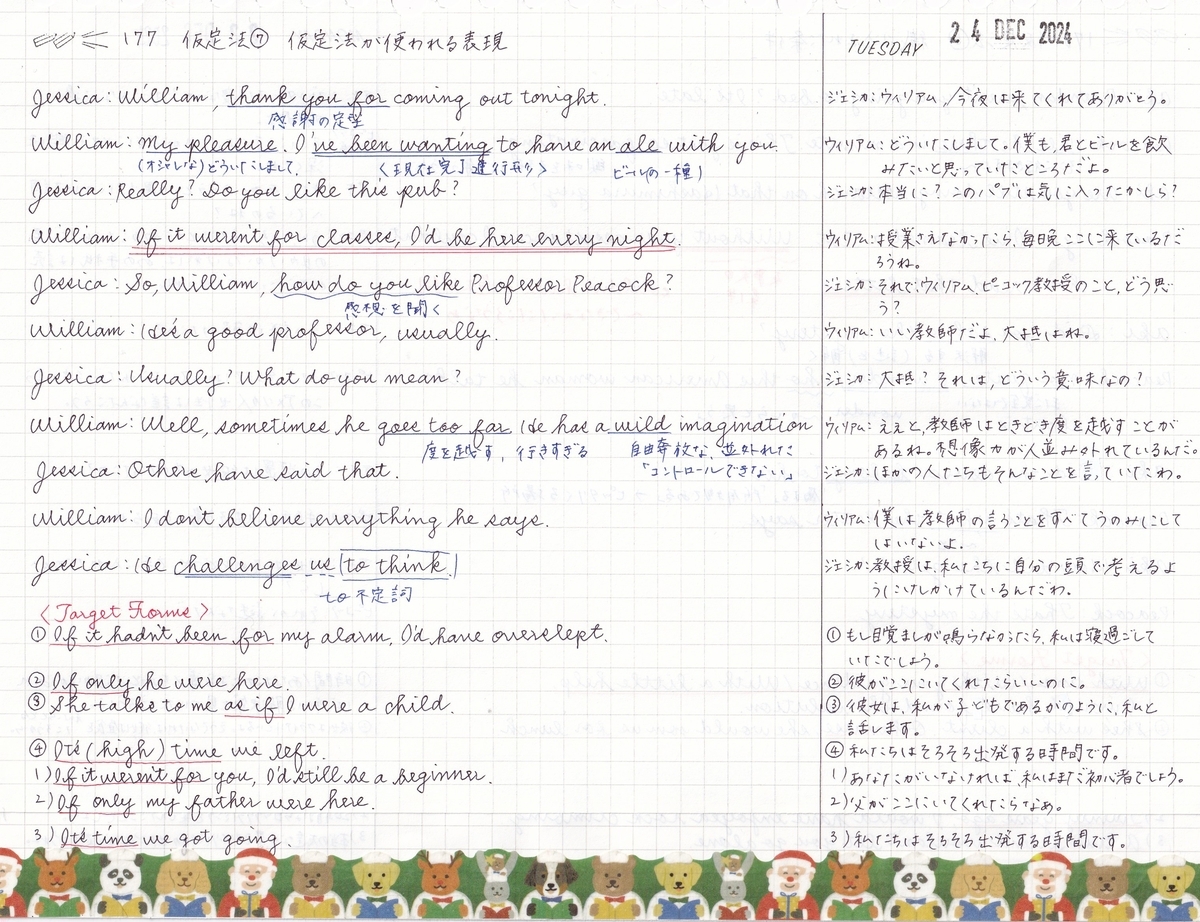 177 仮定法⑦ 仮定法が使われる表現
TUESDAY 24 DEC 2024
Jessica: William, thank you for coming out tonight.
感謝の定型
ジェシカ: ウィリアム, 今夜は来てくれてありがとう。
William: My pleasure. I've been wanting to have an ale with you.
(オシャレな)どういたしまして. 〈現在完了進行形〉 ビールの一種
ウィリアム: どういたしまして。僕も、君とビールを飲
みたいと思っていたところだよ。
Jessica: Really? Do you like this pub?
ジェシカ: 本当に? このパブは気に入ったかしら?
William: If it weren't for classes, I'd be here every night.
ウィリアム: 授業さえなかったら、毎晩ここに来ているだ
ろうね。
Jessica: So, William, how do you like Professor Peacock?
感想を聞く
ジェシカ: それで、ウィリアム、ピーコック教授のこと、どう思
う?
William: He's a good professor, usually.
ウィリアム: いい教師だよ、大抵はね。
Jessica: Usually? What do you mean?
ジェシカ: 大抵? それは、どういう意味なの?
William: Well, sometimes he goes too far. He has a wild imagination
度を越す, 行きすぎる 自由奔放な, 並外れた
「コントロールできない」
ウィリアム: ええと、教師はときどき度を越すことが
あるね。想像力が人並み外れているんだ。
Jessica: Others have said that.
ジェシカ: ほかの人たちもそんなことを言っていたわ。
William: I don't believe everything he says.
ウィリアム: 僕は教師の言うことをすべてうのみにして
はいないよ.
Jessica: He challenges us to think.
to 不定詞
ジェシカ: 教授は、私たちに自分の頭で考えるよ
うにけしかけているんだわ。
〈Target Forms〉
① If it hadn't been for my alarm, I'd have overslept.
① もし目覚ましが鳴らなかったら、私は寝過ごして
いたでしょう。
② If only he were here.
② 彼がここにいてくれたらいいのに。
③ She talks to me as if I were a child.
③ 彼女は、私が子どもであるかのように、私と
話します。
④ It's (high) time we left.
④ 私たちはそろそろ出発する時間です。
1) If it weren't for you, I'd still be a beginner.
1) あなたがいなければ、私はまだ初心者でしょう。
2) If only my father were here.
2) 父がここにいてくれたらなあ。
3) It's time we got going.
3) 私たちはそろそろ出発する時間です。